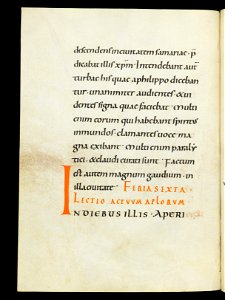 descendens in civitatem samariae · p̄
dicabat illis xp̄m · Intendebant aut̄
turbae his quae a philippo diceban
tur · unanimiter audientes · & vi
dentes signa quae faciebat · Multi
enim eorum qui habebant spiritus
inmundos · clamantes voce ma
gna exibant · Multi enim paraly
tici · & claudi curati sunt · Factum
est autem magnum gaudium · in
illa civitate · FERIA SEXTA ·
LECTIO ACTUUM APLORUM
IN DIEBUS ILLIS · APERI